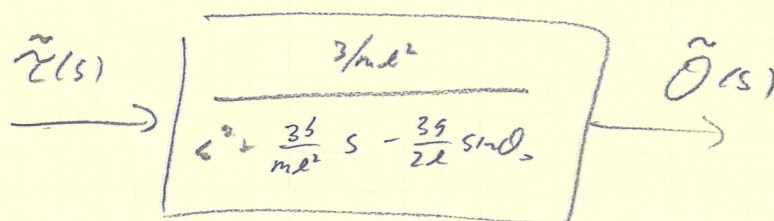 τ̃(s)
3/mℓ²
s² + 3b/mℓ² s - 3g/2ℓ sinθ₀
Θ̃(s)